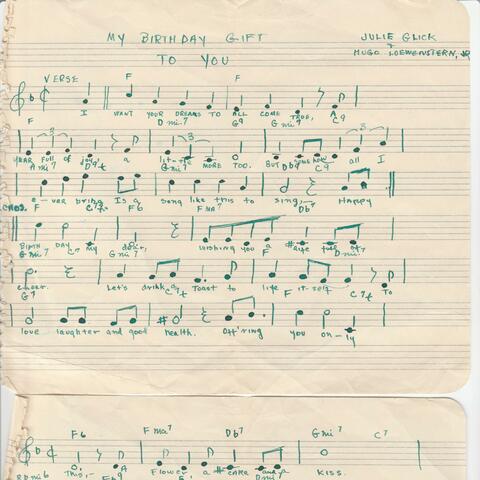 MY BIRTHDAY GIFT
TO YOU
JULIE GLICK
+
HUGO LOEWENSTERN, JR
VERSE F F
I WANT YOUR DREAMS TO ALL COME TRUE, A
F D mi7 G9 Gmi7 C9
YEAR full of joy, a lit-tle MORE TOO. BUT all I
A mi7 D9+ Gmi7 Db9 C9
e-ver bring Is a song like this to sing, Happy
CHOS. F C7+ F6 F MA7 Db7
BIRTH DAY my dear, wishing you a life full of
G mi7 C7 Gmi7 D mi7
cheer. Let's drink a Toast to life it-self To
G7 C7+ F C7+
love laughter and good health. Off'ring you on-ly
F6 F ma7 Db7 G mi7 C7
This,- A Flower a CARD and a KISS.
Bbmi6 Eb9